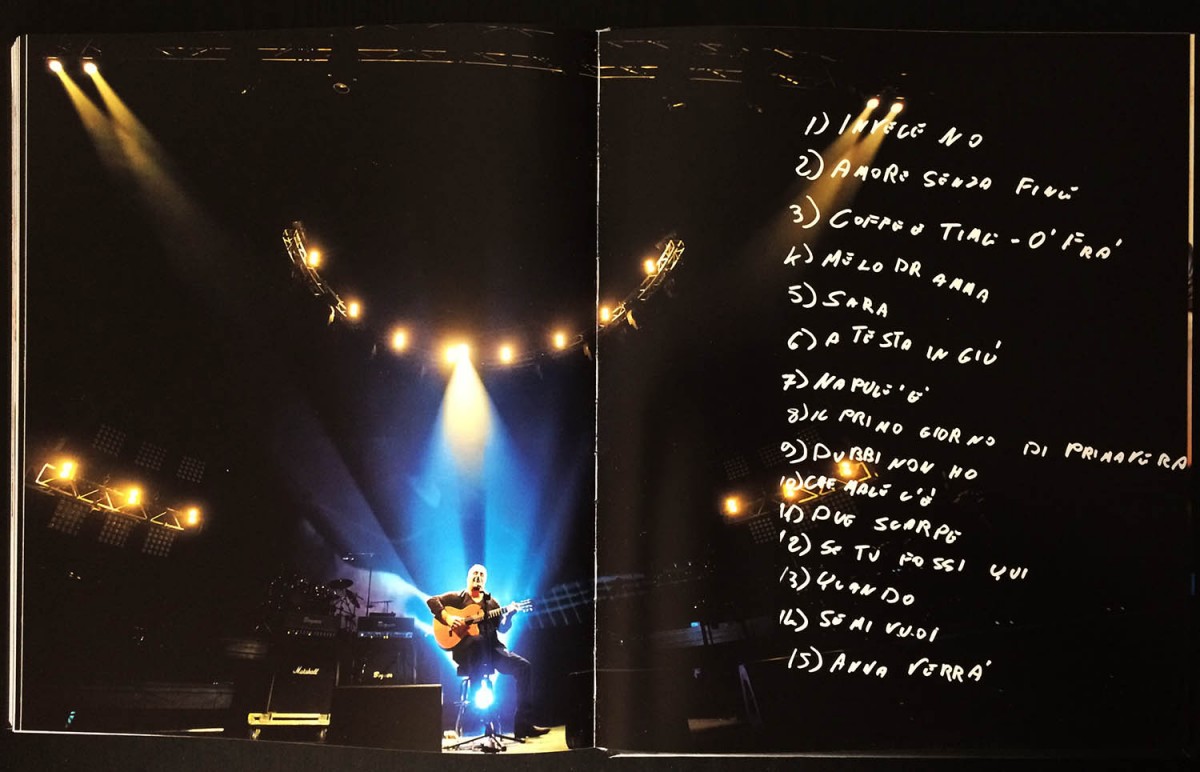 1) INVECE NO
2) AMORE SENZA FINE
3) COFFEE TIME - O' FRA'
4) MELODRAMMA
5) SARA
6) A TESTA IN GIÙ
7) NAPULE 'E'
8) IL PRIMO GIORNO DI PRIMAVERA
9) DUBBI NON HO
10) CHE MALE C'È
11) DUE SCARPE
12) SE TU FOSSI QUI
13) QUANDO
14) SE MI VUOI
15) ANNA VERRA'
Marshall